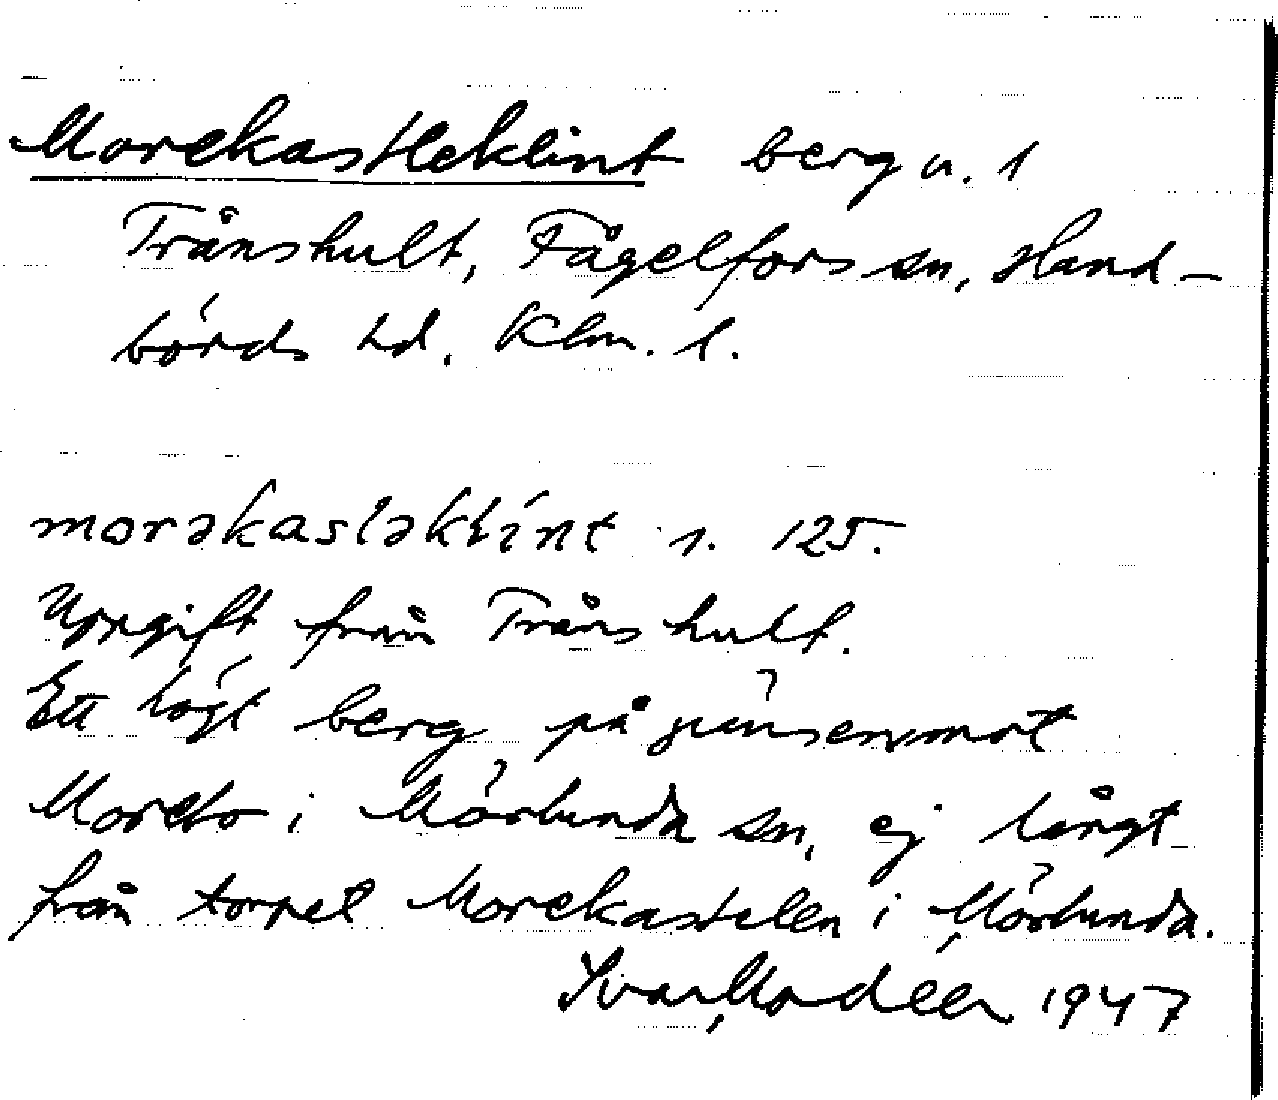 Morekastleklint berg u. 1
Trånshult, Fågelfors sn, Hand-
börds hd. Klm. l.
morəkasləklint 1. 125.
Uppgift från Trånshult.
Ett högt berg på gränsen mot
Moreto i Mörlunda sn, ej långt
från torpet Morekastelen i Mörlunda.
Ivar Modéer 1947